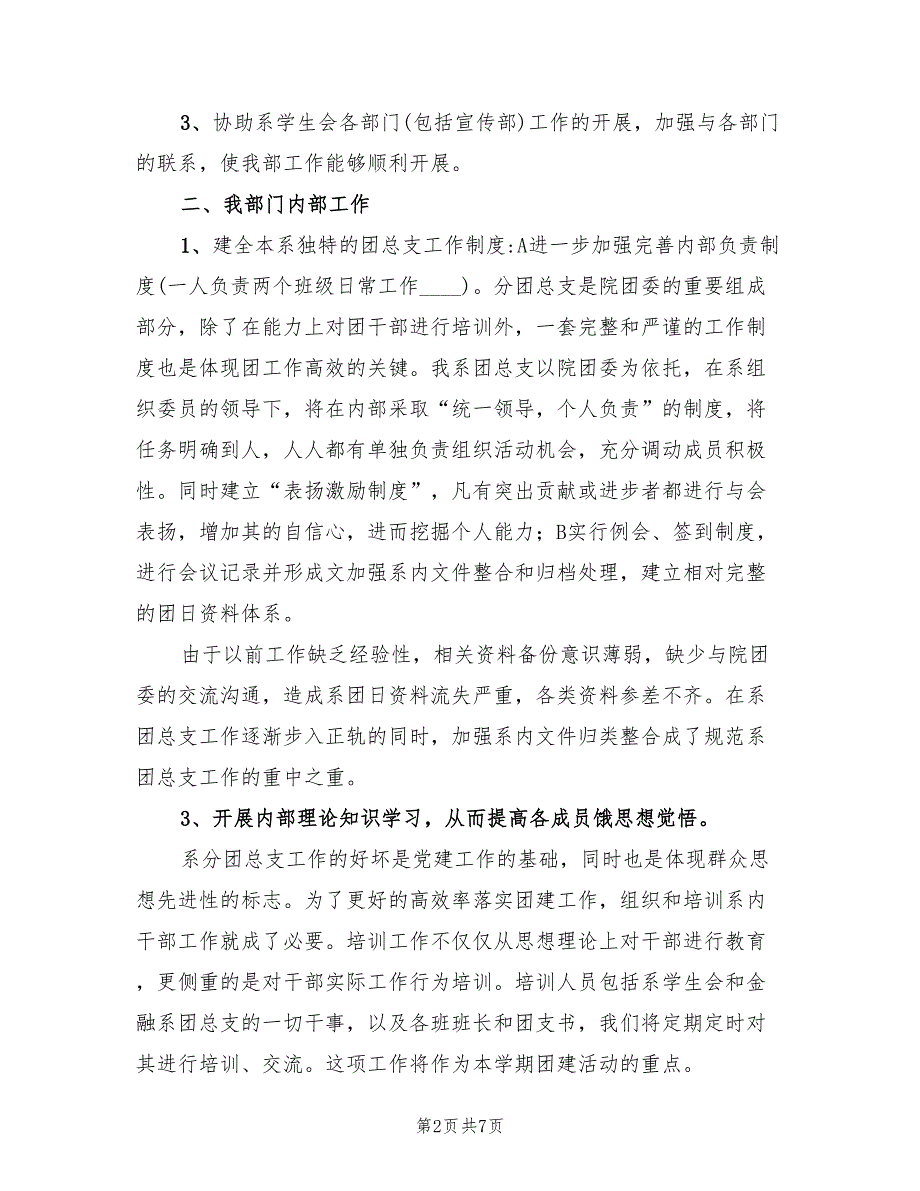 3、协助系学生会各部门(包括宣传部)工作的开展，加强与各部门
的联系，使我部工作能够顺利开展。
二、我部门内部工作
1、建全本系独特的团总支工作制度:A进一步加强完善内部负责制
度(一人负责两个班级日常工作____)。分团总支是院团委的重要组成
部分，除了在能力上对团干部进行培训外，一套完整和严谨的工作制
度也是体现团工作高效的关键。我系团总支以院团委为依托，在系组
织委员的领导下，将在内部采取“统一领导，个人负责”的制度，将
任务明确到人，人人都有单独负责组织活动机会，充分调动成员积极
性。同时建立“表扬激励制度”，凡有突出贡献或进步者都进行与会
表扬，增加其的自信心，进而挖掘个人能力；B实行例会、签到制度，
进行会议记录并形成文加强系内文件整合和归档处理，建立相对完整
的团日资料体系。
由于以前工作缺乏经验性，相关资料备份意识薄弱，缺少与院团
委的交流沟通，造成系团日资料流失严重，各类资料参差不齐。在系
团总支工作逐渐步入正轨的同时，加强系内文件归类整合成了规范系
团总支工作的重中之重。
3、开展内部理论知识学习，从而提高各成员饿思想觉悟。
系分团总支工作的好坏是党建工作的基础，同时也是体现群众思
想先进性的标志。为了更好的高效率落实团建工作，组织和培训系内
干部工作就成了必要。培训工作不仅仅从思想理论上对干部进行教育
，更侧重的是对干部实际工作行为培训。培训人员包括系学生会和金
融系团总支的一切干事，以及各班班长和团支书，我们将定期定时对
其进行培训、交流。这项工作将作为本学期团建活动的重点。
第2页共7页